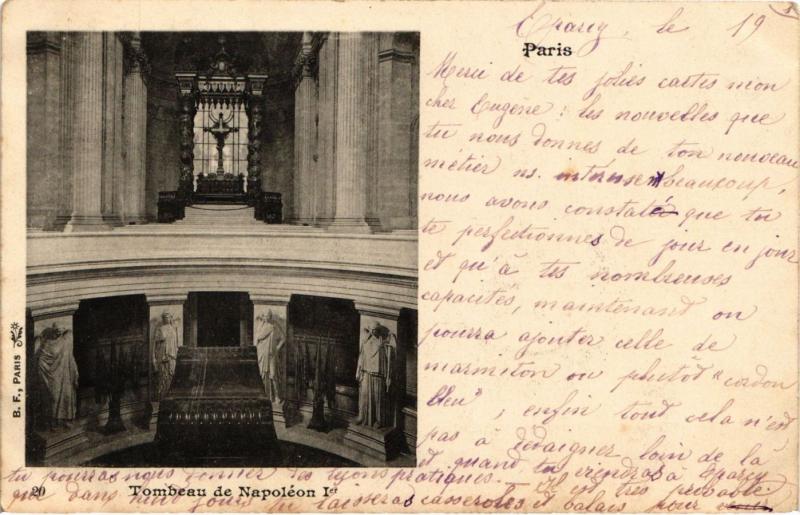 Eparcy, le 19
Paris
Merci de tes jolies cartes mon
cher Eugène : les nouvelles que
tu nous donnes de ton nouveau
métier ns. intéressent beaucoup,
nous avons constaté que tu
te perfectionnes de jour en jour
et qu'à tes nombreuses
capacités, maintenant on
pourra ajouter celle de
marmiton ou plutôt "cordon
bleu", enfin tout cela n'est
pas à dédaigner loin de là
et quand tu viendras à Eparcy
tu pourras nous donner des leçons pratiques. Il est très probable
que dans huit jours tu laisseras casseroles et balais pour
B. F., PARIS
20 Tombeau de Napoléon Ier